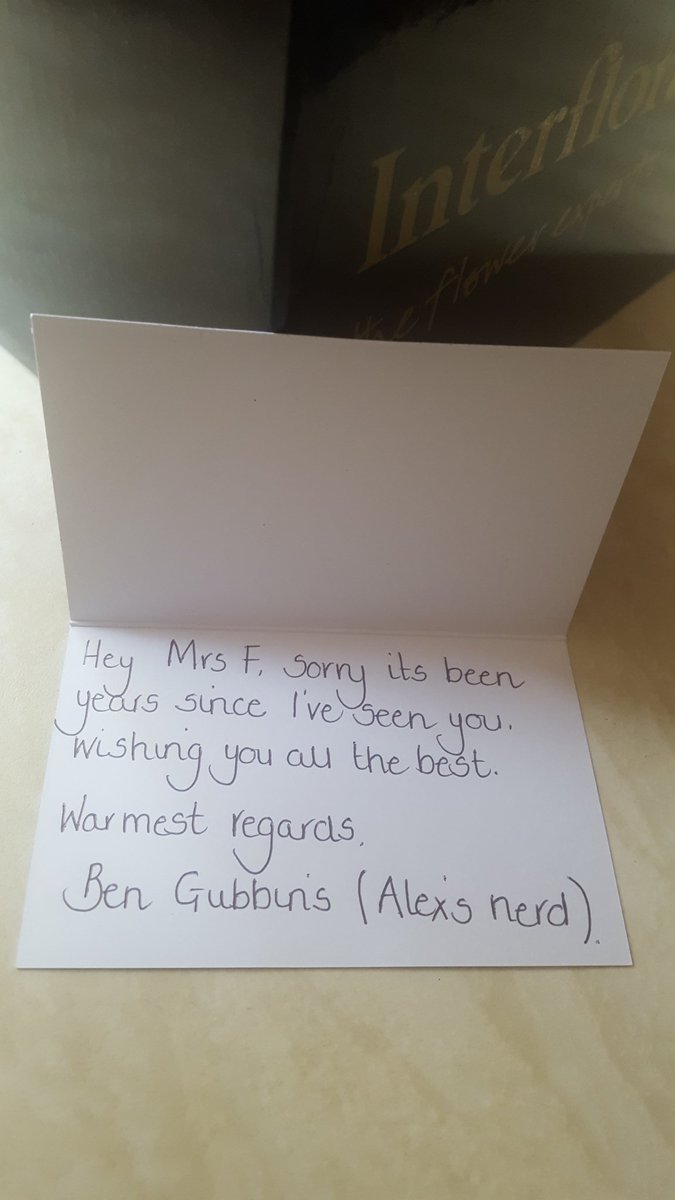 Interflor
the flower experts
Hey Mrs F, Sorry its been
years since I've seen you.
Wishing you all the best.
Warmest regards,
Ben Gubbins (Alex's nerd).